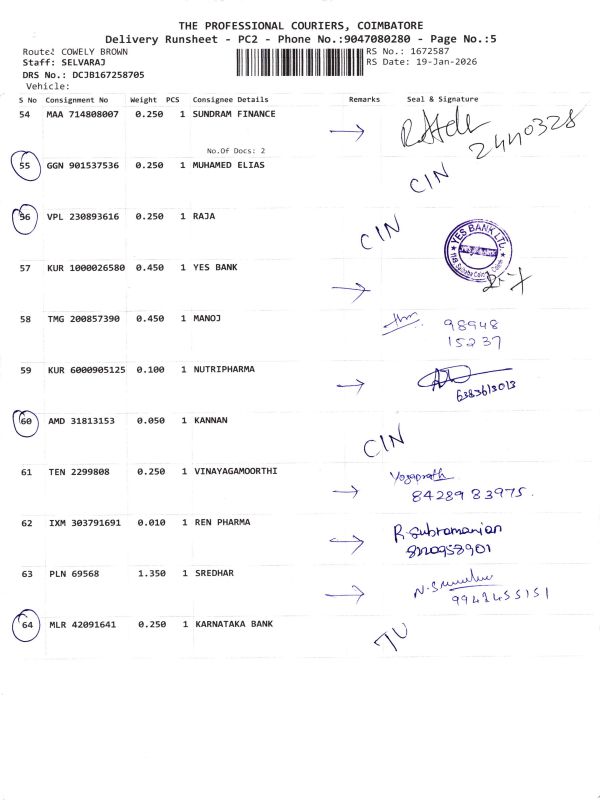 THE PROFESSIONAL COURIERS, COIMBATORE
Delivery Runsheet - PC2 - Phone No.:9047080280 - Page No.:5
Route: COWELY BROWN RS No.: 1672587
Staff: SELVARAJ RS Date: 19-Jan-2026
DRS No.: DCJB167258705
Vehicle:
S No Consignment No Weight PCS Consignee Details Remarks Seal & Signature
54 MAA 714808007 0.250 1 SUNDRAM FINANCE
2440328
No.Of Docs: 2
55 GGN 901537536 0.250 1 MUHAMED ELIAS CIN
56 VPL 230893616 0.250 1 RAJA CIN
YES BANK LTD
57 KUR 1000026580 0.450 1 YES BANK
58 TMG 200857390 0.450 1 MANOJ 98948
15237
59 KUR 6000905125 0.100 1 NUTRIPHARMA
6383613013
60 AMD 31813153 0.050 1 KANNAN CIN
61 TEN 2299808 0.250 1 VINAYAGAMOORTHI
84289 83975.
62 IXM 303791691 0.010 1 REN PHARMA R. Subramanian
63 PLN 69568 1.350 1 SREDHAR
64 MLR 42091641 0.250 1 KARNATAKA BANK